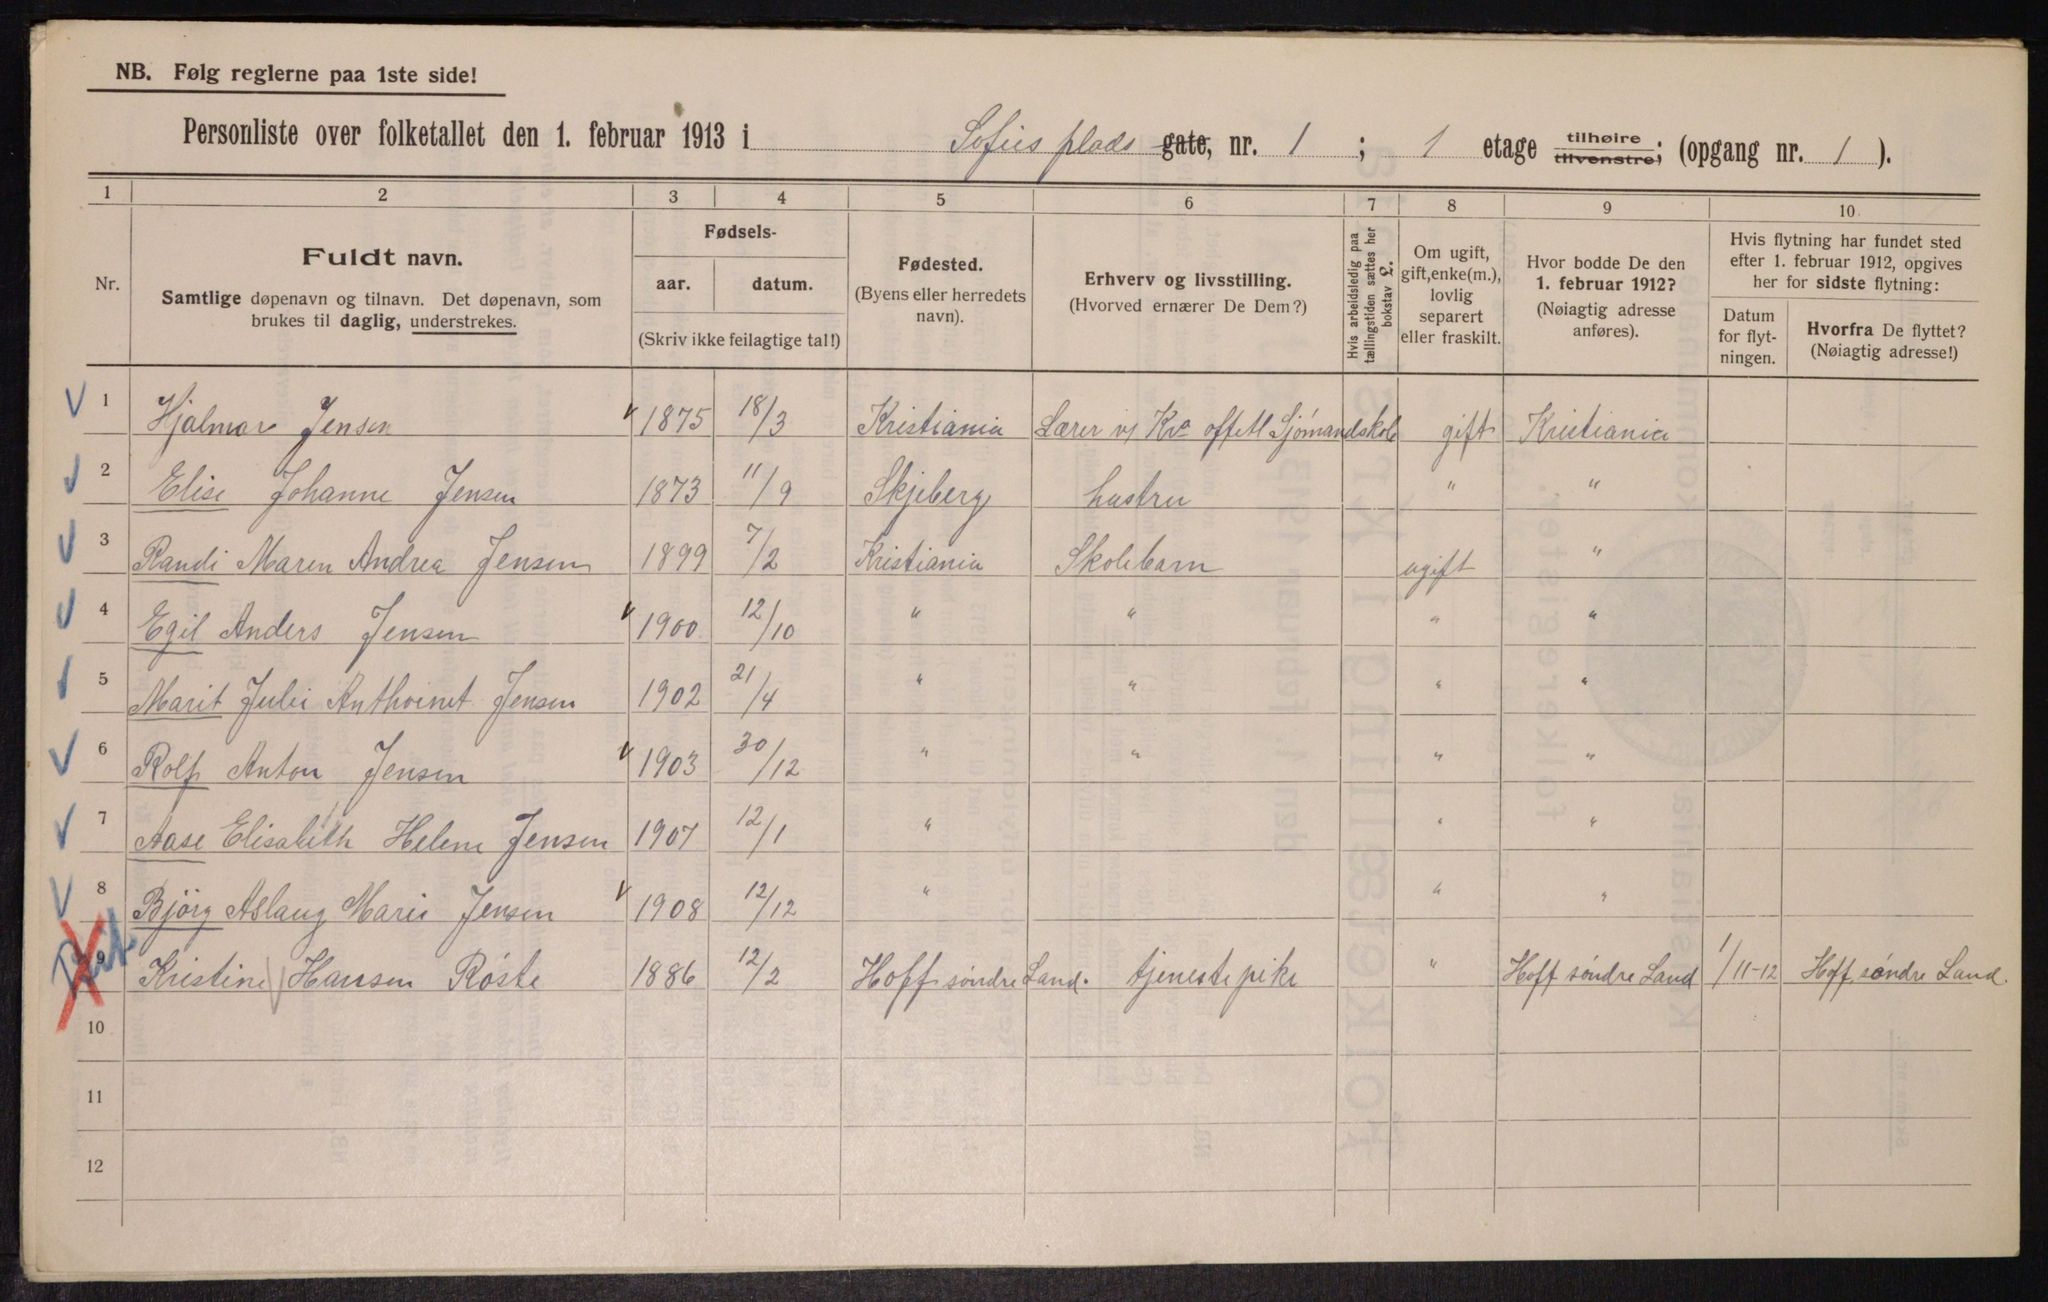 NB. Følg reglerne paa 1ste side!
Personliste over folketallet den 1. februar 1913 i Sofies plads gate, nr. 1 ; 1 etage tilhøire tilvenstre; (opgang nr. 1 ).
1 2 3 4 5 6 7 8 9 10
Nr.
Fuldt navn.
Samtlige døpenavn og tilnavn. Det døpenavn, som
brukes til daglig, understrekes.
Fødsels-
aar. datum.
(Skriv ikke feilagtige tal!)
Fødested.
(Byens eller herredets
navn).
Erhverv og livsstilling.
(Hvorved ernærer De Dem?)
Hvis arbeidsledig paa
tællingstiden sættes her
bokstav L.
Om ugift,
gift, enke(m.),
lovlig
separert
eller fraskilt.
Hvor bodde De den
1. februar 1912?
(Nøiagtig adresse
anføres).
Hvis flytning har fundet sted
efter 1. februar 1912, opgives
her for sidste flytning:
Datum
for flyt-
ningen.
Hvorfra De flyttet?
(Nøiagtig adresse!)
1 Hjalmar Jensen 1875 18/3 Kristiania Lærer v/ Kra offetl Sjømandskole gift Kristiania
2 Elise Johanne Jensen 1873 11/9 Skjeberg hustru " "
3 Randi Maren Andrea Jensen 1899 7/2 Kristiania Skolebarn ugift "
4 Egil Anders Jensen 1900 12/10 " " " "
5 Marit Julie Anthoinet Jensen 1902 21/4 " " " "
6 Rolf Anton Jensen 1903 30/12 " " " "
7 Aase Elisabeth Helene Jensen 1907 12/1 " " "
8 Bjørg Aslaug Marie Jensen 1908 12/12 " " "
9 Kristine Hansen Røste 1886 12/2 Hoff søndre Land. tjenestepike " Hoff søndre Land 1/11-12 Hoff, søndre Land.
10
11
12